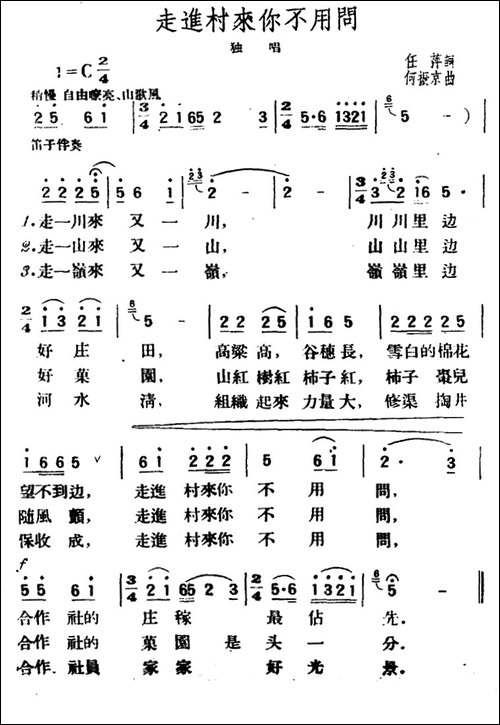 走進村來你不用問
独 唱
1=C 2/4
任 萍詞
何振京曲
稍慢 自由嘹亮、山歌風
2 5 6 1 | 3/4 2 1 65 2 3 | 2/4 5·6 1321 | 6 5 - )
笛子伴奏
2 2 2 5 | 5 6 1 | 2 3 2 - | 2 - | 3/4 3 2 3 2 16 5· |
1.走一川來 又 一 川, 川 川里 边
2.走一山來 又 一 山, 山 山里 边
3.走一嶺來 又 一 嶺, 嶺 嶺里 边
2/4 1 3 2 1 | 6 5 - | 2 2 2 5 | 1 6 5 | 2 2 2 2 5 |
好 庄 田, 高粱 高, 谷穗 長, 雪白的 棉花
好 菓 園, 山紅 樹紅 柿子 紅, 柿子 棗兒
河 水 清, 組織 起來 力量 大, 修渠 掏井
1 6 6 5 ∨ | 6 1 2 2 2 | 5 6 1 | 2· 3 |
望不到边, 走進 村來你 不 用 問,
随風 顫, 走進 村來你 不 用 問,
保收 成, 走進 村來你 不 用 問,
f
5 5 6 1 | 3/4 2 1 65 2 3 | 2/4 5·6 1321 | 6 5 - ||
合作 社的 庄 稼 最 佔 先.
合作 社的 菓 園 是 头 一 分.
合作 社員 家 家 好 光 景.